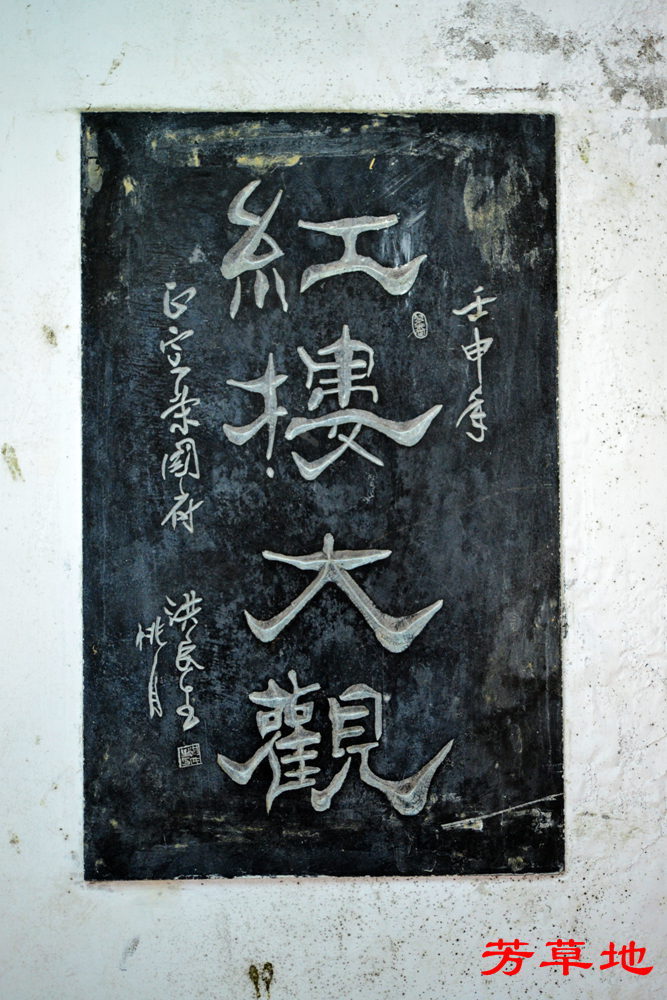 壬申年
紅樓大觀
正定榮國府
洪民生
桃月
芳草地